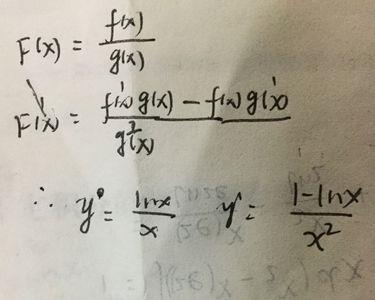 F(x) = f(x)/g(x)
F'(x) = f'(x)g(x) - f(x)g'(x)/g²(x)
∴ y = lnx/x y' = 1-lnx/x²